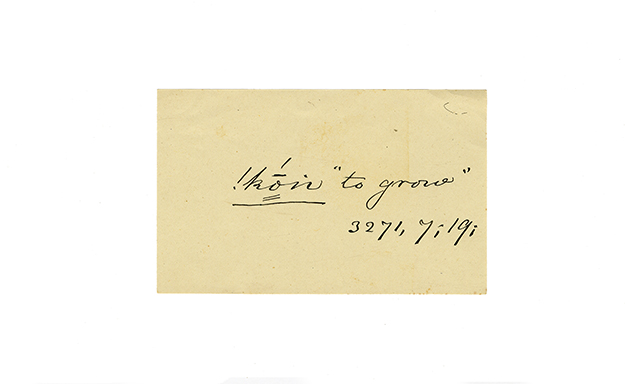 !kṓin "to grow"
3271, 7; 19;